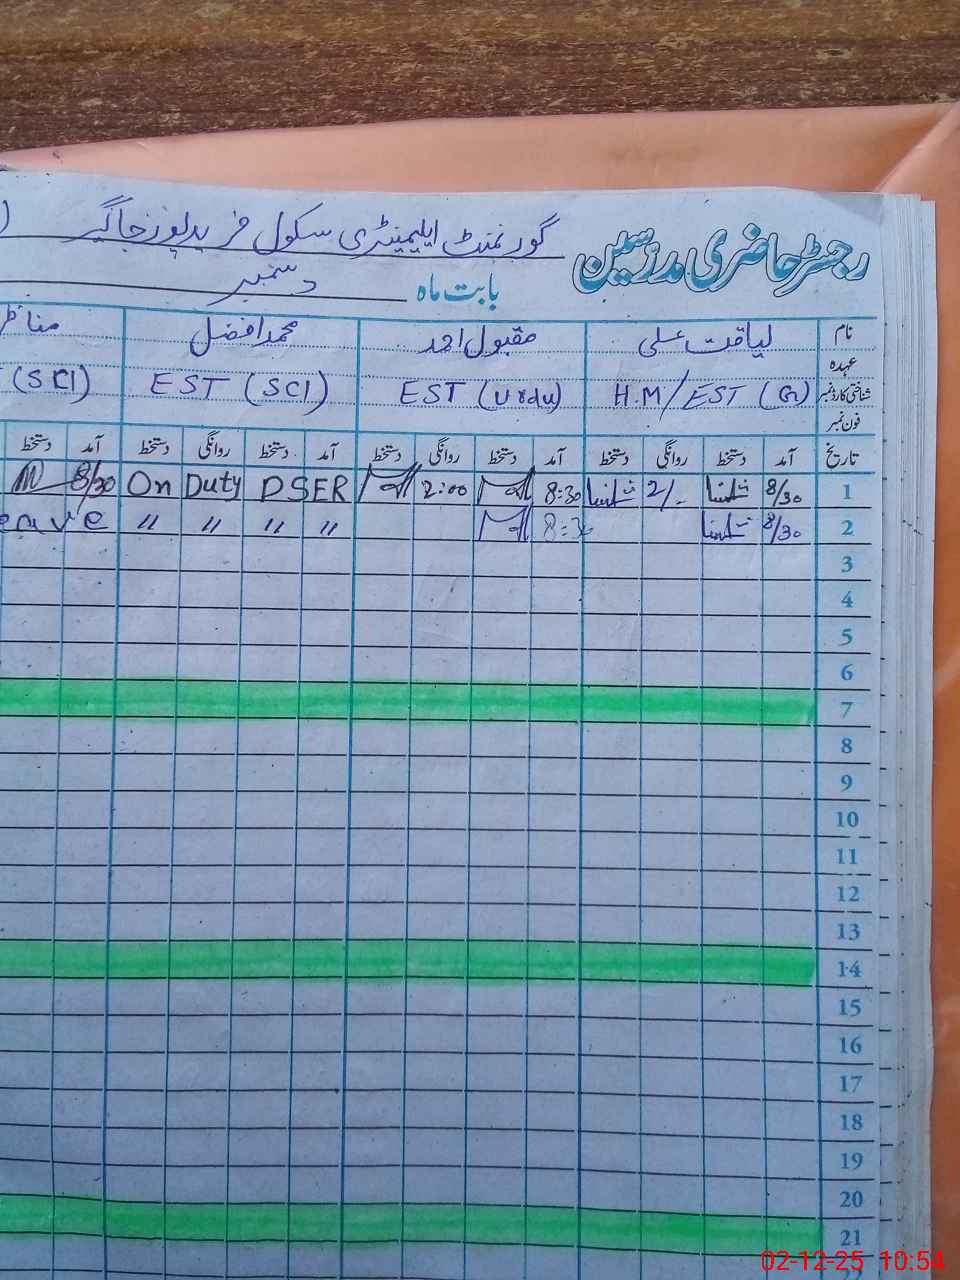 رجسٹر حاضری مدرسین گورنمنٹ ایلیمنٹری سکول فرید پور جاگیر (
بابت ماہ دسمبر
نام لیاقت علی مقبول احمد محمد افضل
عہدہ
شناختی کارڈ نمبر H.M/EST (G) EST (Urdu) EST (SCI) (SCI)
فون نمبر
تاریخ آمد دستخط روانگی دستخط آمد دستخط روانگی دستخط آمد دستخط روانگی دستخط آمد دستخط
1 8/30 2/- 8:30 2:00 On Duty DSER 8/30
2 8/30 8:30 " " " " eave
3
4
5
6
7
8
9
10
11
12
13
14
15
16
17
18
19
20
21
02-12-25 10:54